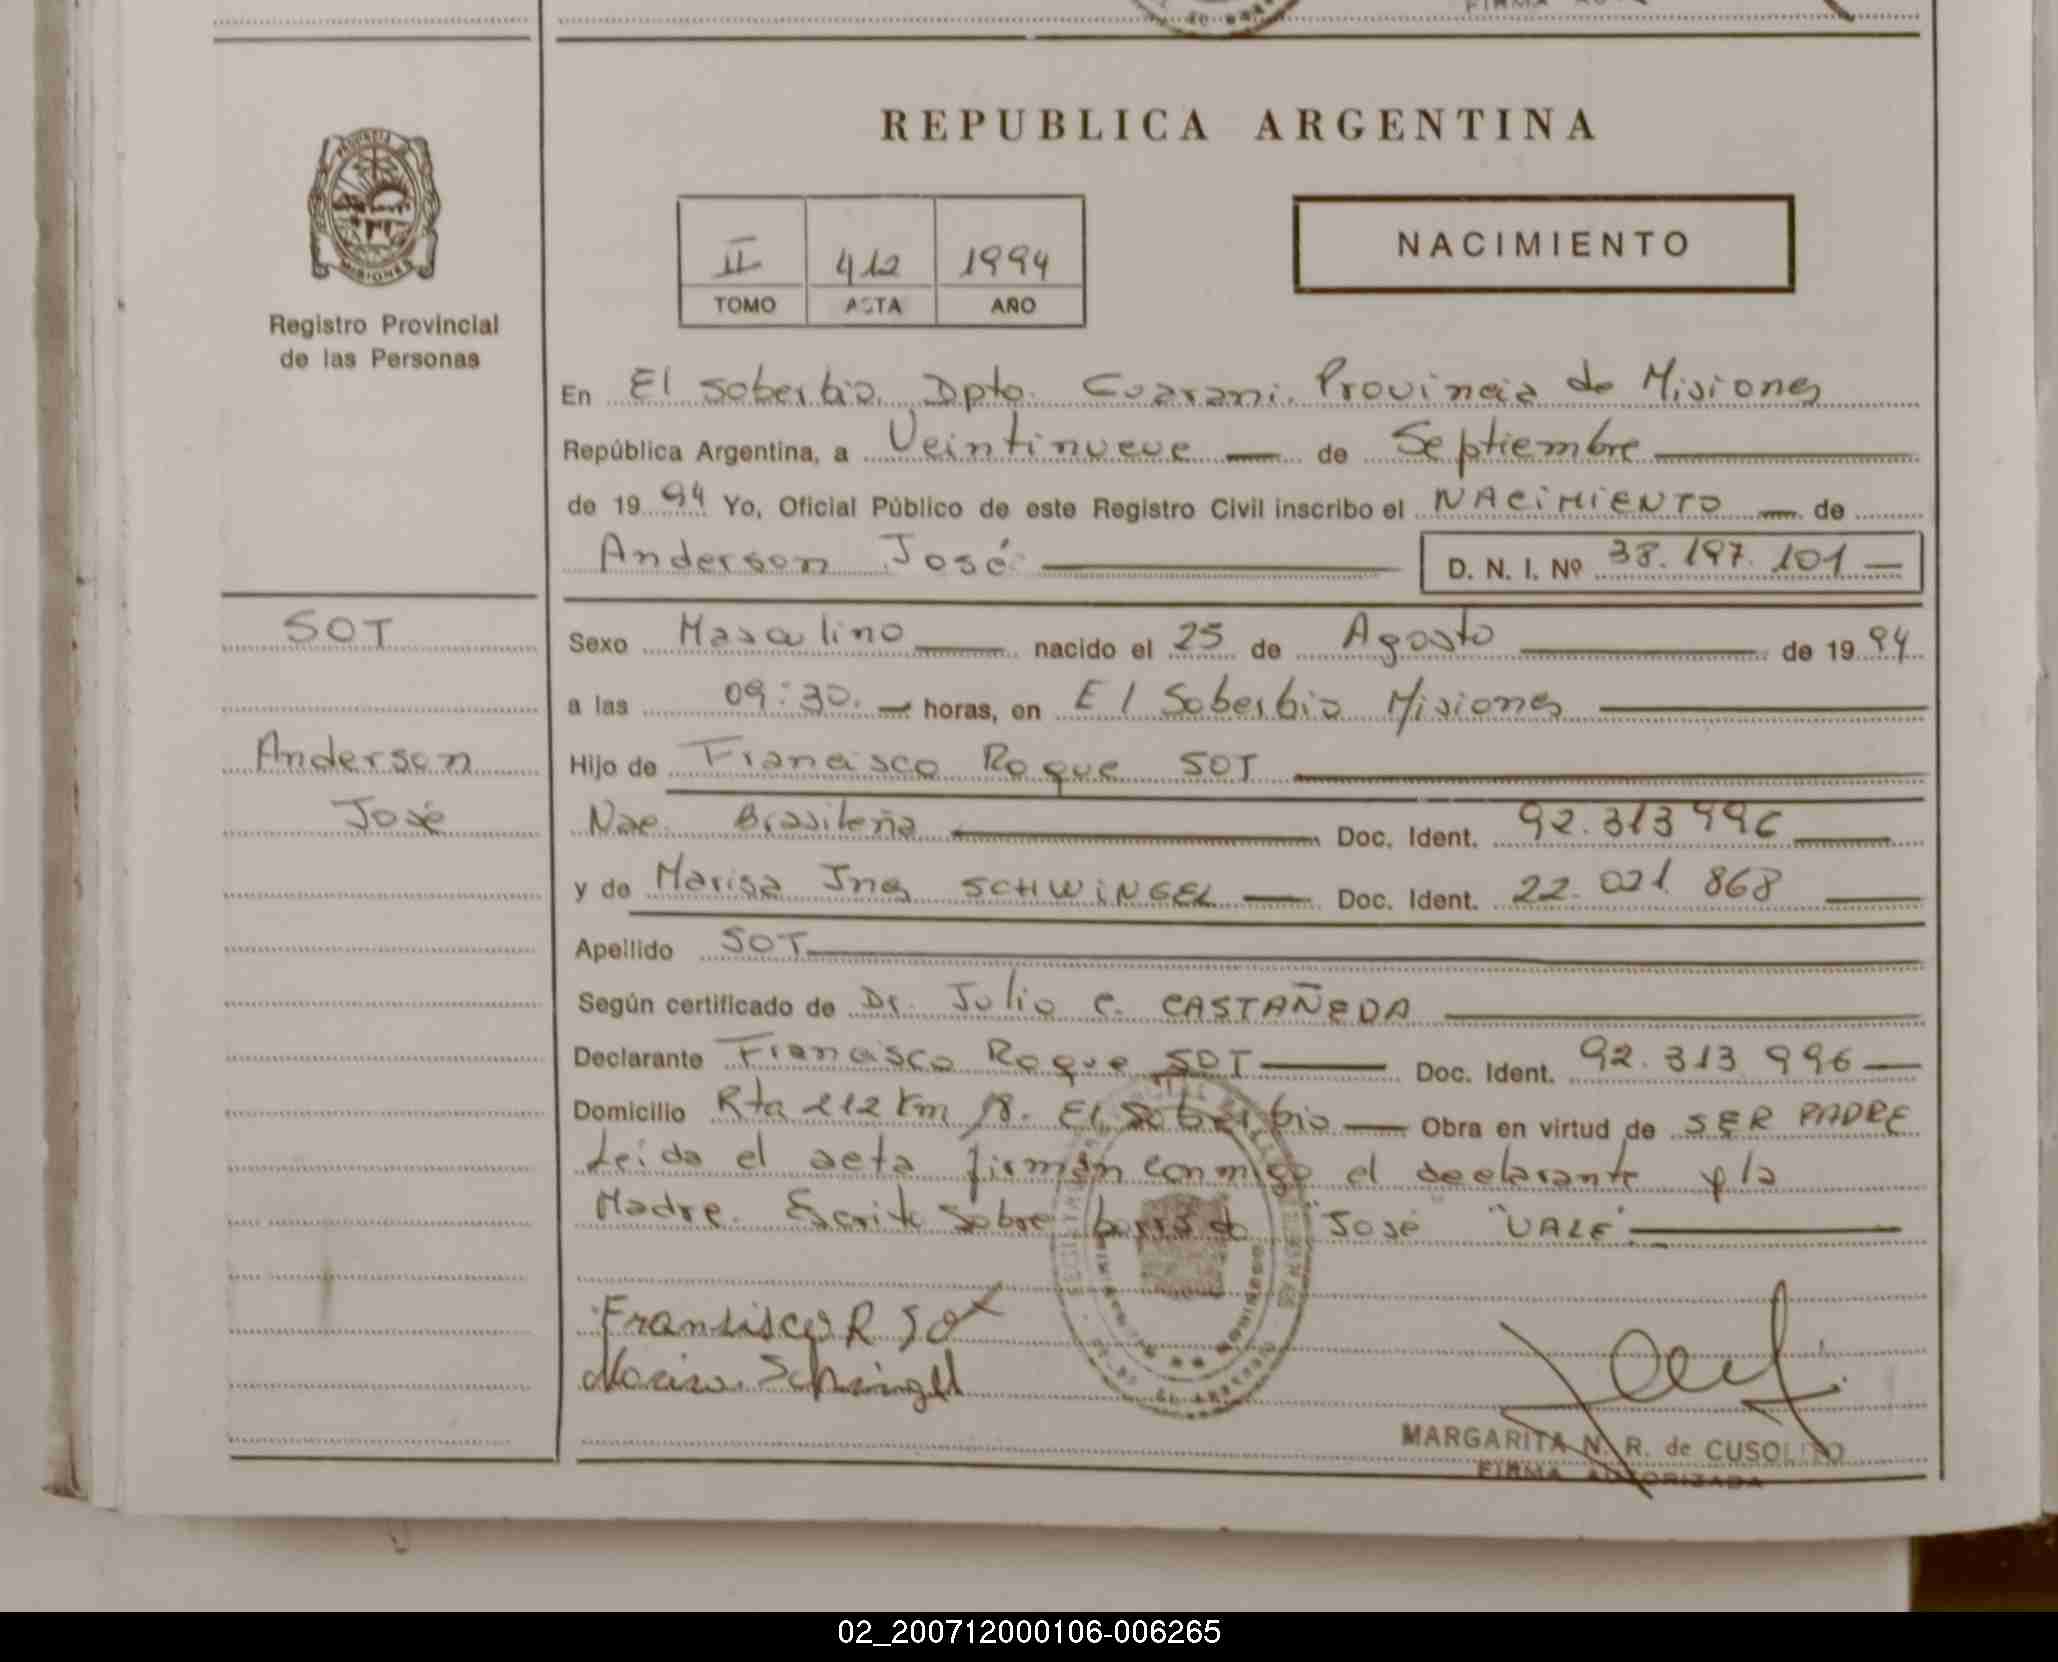 REPUBLICA ARGENTINA
PROVINCIA
MISIONES
Registro Provincial
de las Personas
II 412 1994
TOMO ACTA AÑO
NACIMIENTO
En El Soberbio. Dpto. Guarani. Provincia de Misiones
República Argentina, a Veintinueve de Septiembre
de 1994 Yo, Oficial Público de este Registro Civil inscribo el NACIMIENTO de
Anderson José D. N. I. Nº 38.197.101
SOT
Anderson
José
Sexo Masculino nacido el 25 de Agosto de 1994
a las 09:30. horas, en El Soberbio Misiones
Hijo de Francisco Roque SOT
Nac. Brasileña Doc. Ident. 92.313 996
y de Marisa Ines SCHWINGEL Doc. Ident. 22.021 868
Apellido SOT
Según certificado de Dr. Julio C. CASTAÑEDA
Declarante Francisco Roque SOT Doc. Ident. 92.313 996
Domicilio Rta 212 Km 18. El Soberbio Obra en virtud de SER PADRE
Leida el acta firman conmigo el declarante y la
Madre. Escrito sobre borrado "José" "VALE"
Fransisco R Sot
Marisa Schwingel
MARGARITA N. R. de CUSOLITO
FIRMA AUTORIZADA
02_200712000106-006265